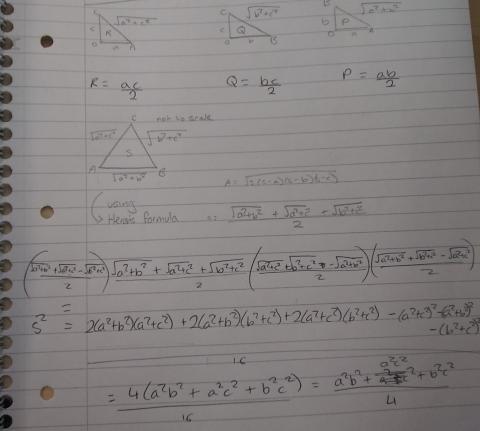 C √a²+c² C √b²+c² B √a²+b²
c R c Q b P
O a A O b B O a A
R = ac/2 Q = bc/2 P = ab/2
C not to scale
√a²+c² √b²+c²
S
A √a²+b² B
using
Heros formula
√a²+b² + √a²+c² - √b²+c² / 2
(√a²+b² + √a²+c² - √b²+c² / 2) √a²+b² + √a²+c² + √b²+c² / 2 (√a²+c² + √b²+c² - √a²+b² / 2) (√a²+b² + √b²+c² - √a²+c² / 2)
=
S² = 2(a²+b²)(a²+c²) + 2(a²+b²)(b²+c²) + 2(a²+c²)(b²+c²) - (a²+c²)² - (a²+b²)²
- (b²+c²)²
16
= 4(a²b² + a²c² + b²c²) / 16 = a²b² + a²c² + b²c² / 4